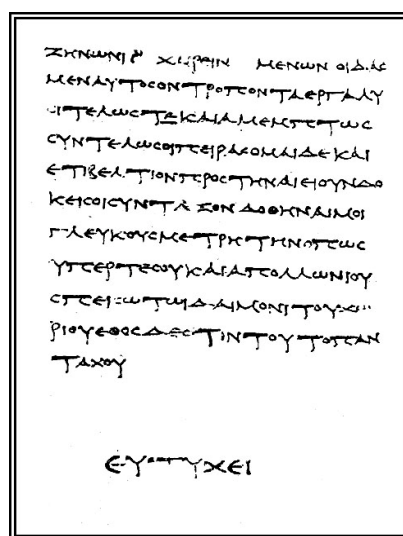 ΖΗΝΩΝΙ ΧΑΙΡΕΙΝ ΜΕΝΩΝ ΟΙΔΑΣ
ΜΕΝΑΥΤΟΣΟΝΤΡΟΠΟΝΤΑΕΡΓΑΛΥ
ΣΙΤΕΛΩΣΤΕΚΑΙΑΜΕΝΠΤΩΣ
ΣΥΝΤΕΛΩΣΟΙΠΕΙΡΑΣΟΜΑΙΔΕΚΑΙ
ΕΤΙΒΕΛΤΙΟΝΠΡΟΣΤΗΝΑΙΕΙΟΥΝΔΟ
ΚΕΙΣΟΙΣΥΝΤΑΞΟΝΔΟΘΗΝΑΙΜΟΙ
ΓΛΕΥΚΟΥΣΜΕΤΡΗΤΗΝΟΠΩΣ
ΥΠΕΡΤΕΣΟΥΚΑΙΑΠΟΛΛΩΝΙΟΥ
ΣΠΕΙΣΩΤΩΙΔΑΙΜΟΝΙΤΟΥΧΩ
ΡΙΟΥΕΘΟΣΔΕΣΤΙΝΤΟΥΤΟΠΑΝ
ΤΑΧΟΥ
ΕΥΤΥΧΕΙ